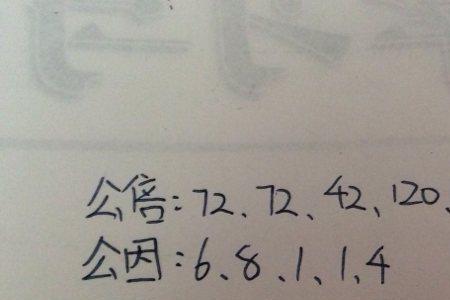 公倍:72、72、42、120、
公因:6、8、1、1、4